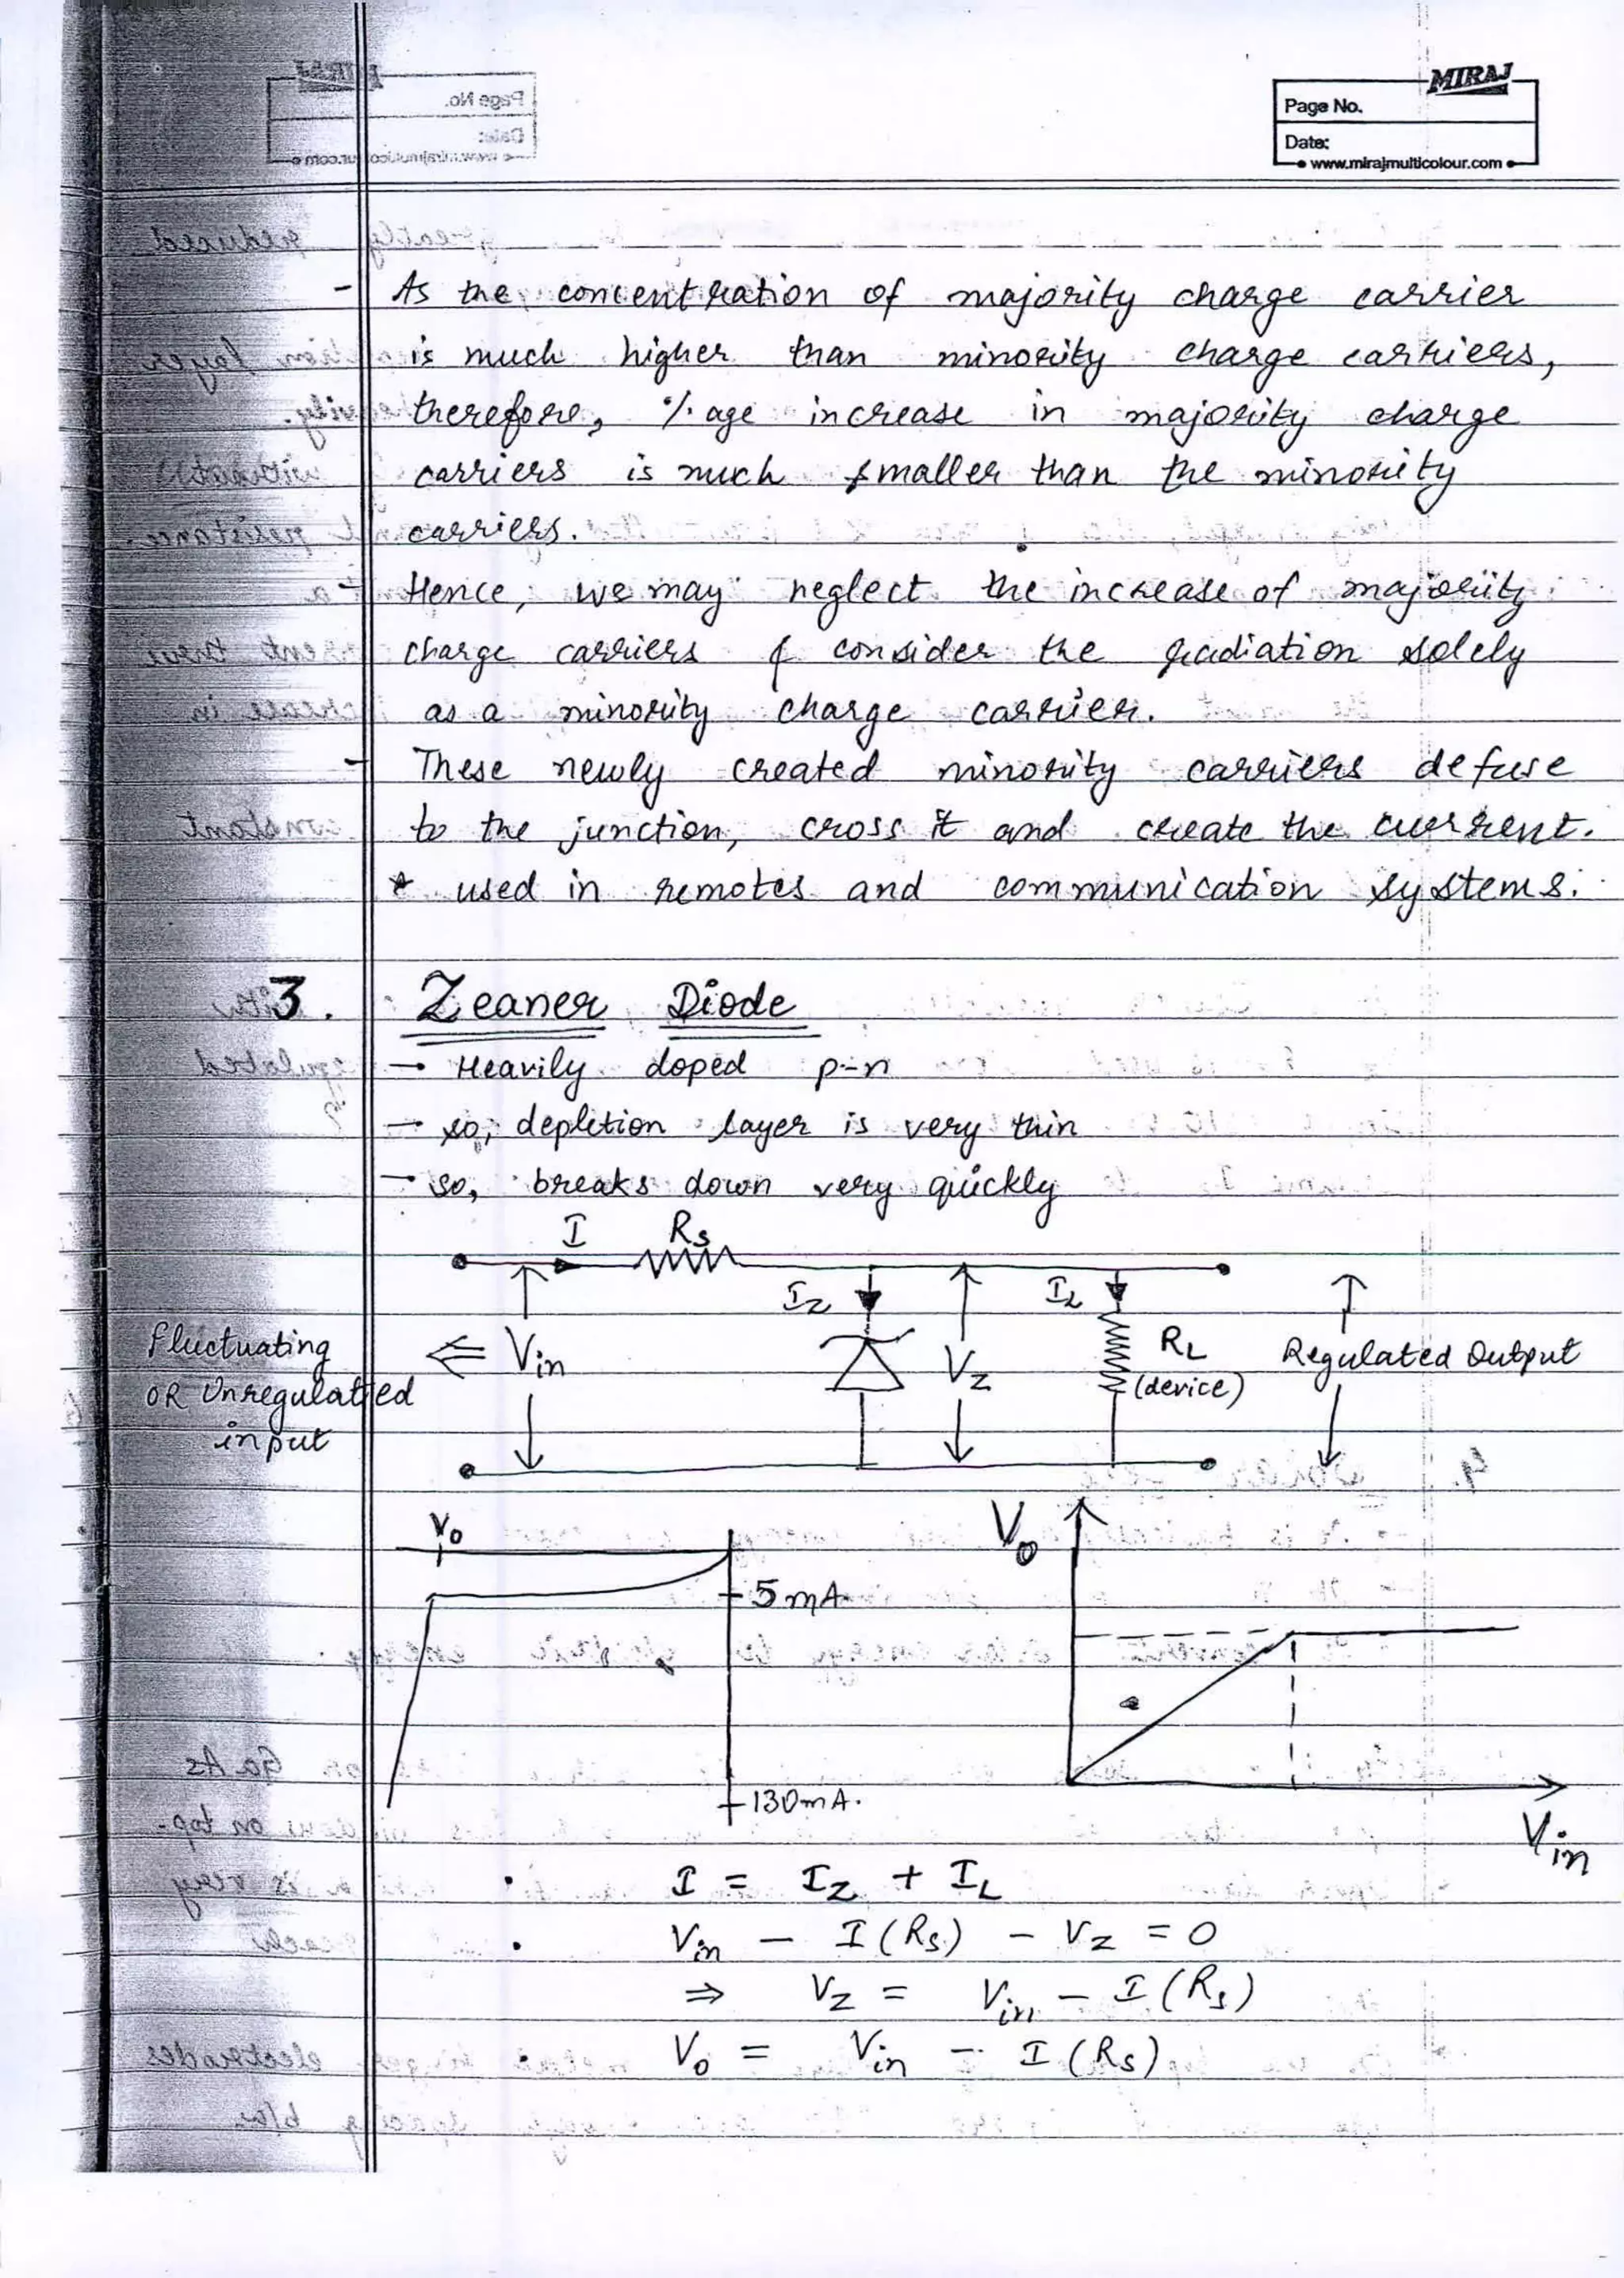 MIRAJ
Page No.
Date:
www.mirajmulticolour.com
- As the concentration of majority charge carrier
is much higher than minority charge carriers,
therefore, %age increase in majority charge
carriers is much smaller than the minority
carriers.
- Hence, we may neglect the increase of majority
charge carriers & consider the radiation solely
as a minority charge carrier.
- These newly created minority carriers defuse
to the junction, cross it and create the current.
* used in remotes and communication systems.
3. Zeaner Diode
→ Heavily doped p-n
→ so, depletion layer is very thin
→ so, breaks down very quickly
I Rs
Iz IL
Fluctuating
OR Unregulatied
input
⇐ Vin
Vz
RL
(device)
Regulated Output
Vo
5mA
130mA.
Vo
Vin
• I = Iz + IL
• Vin - I(Rs) - Vz = 0
⇒ Vz = Vin - I(Rs)
• Vo = Vin - I(Rs)